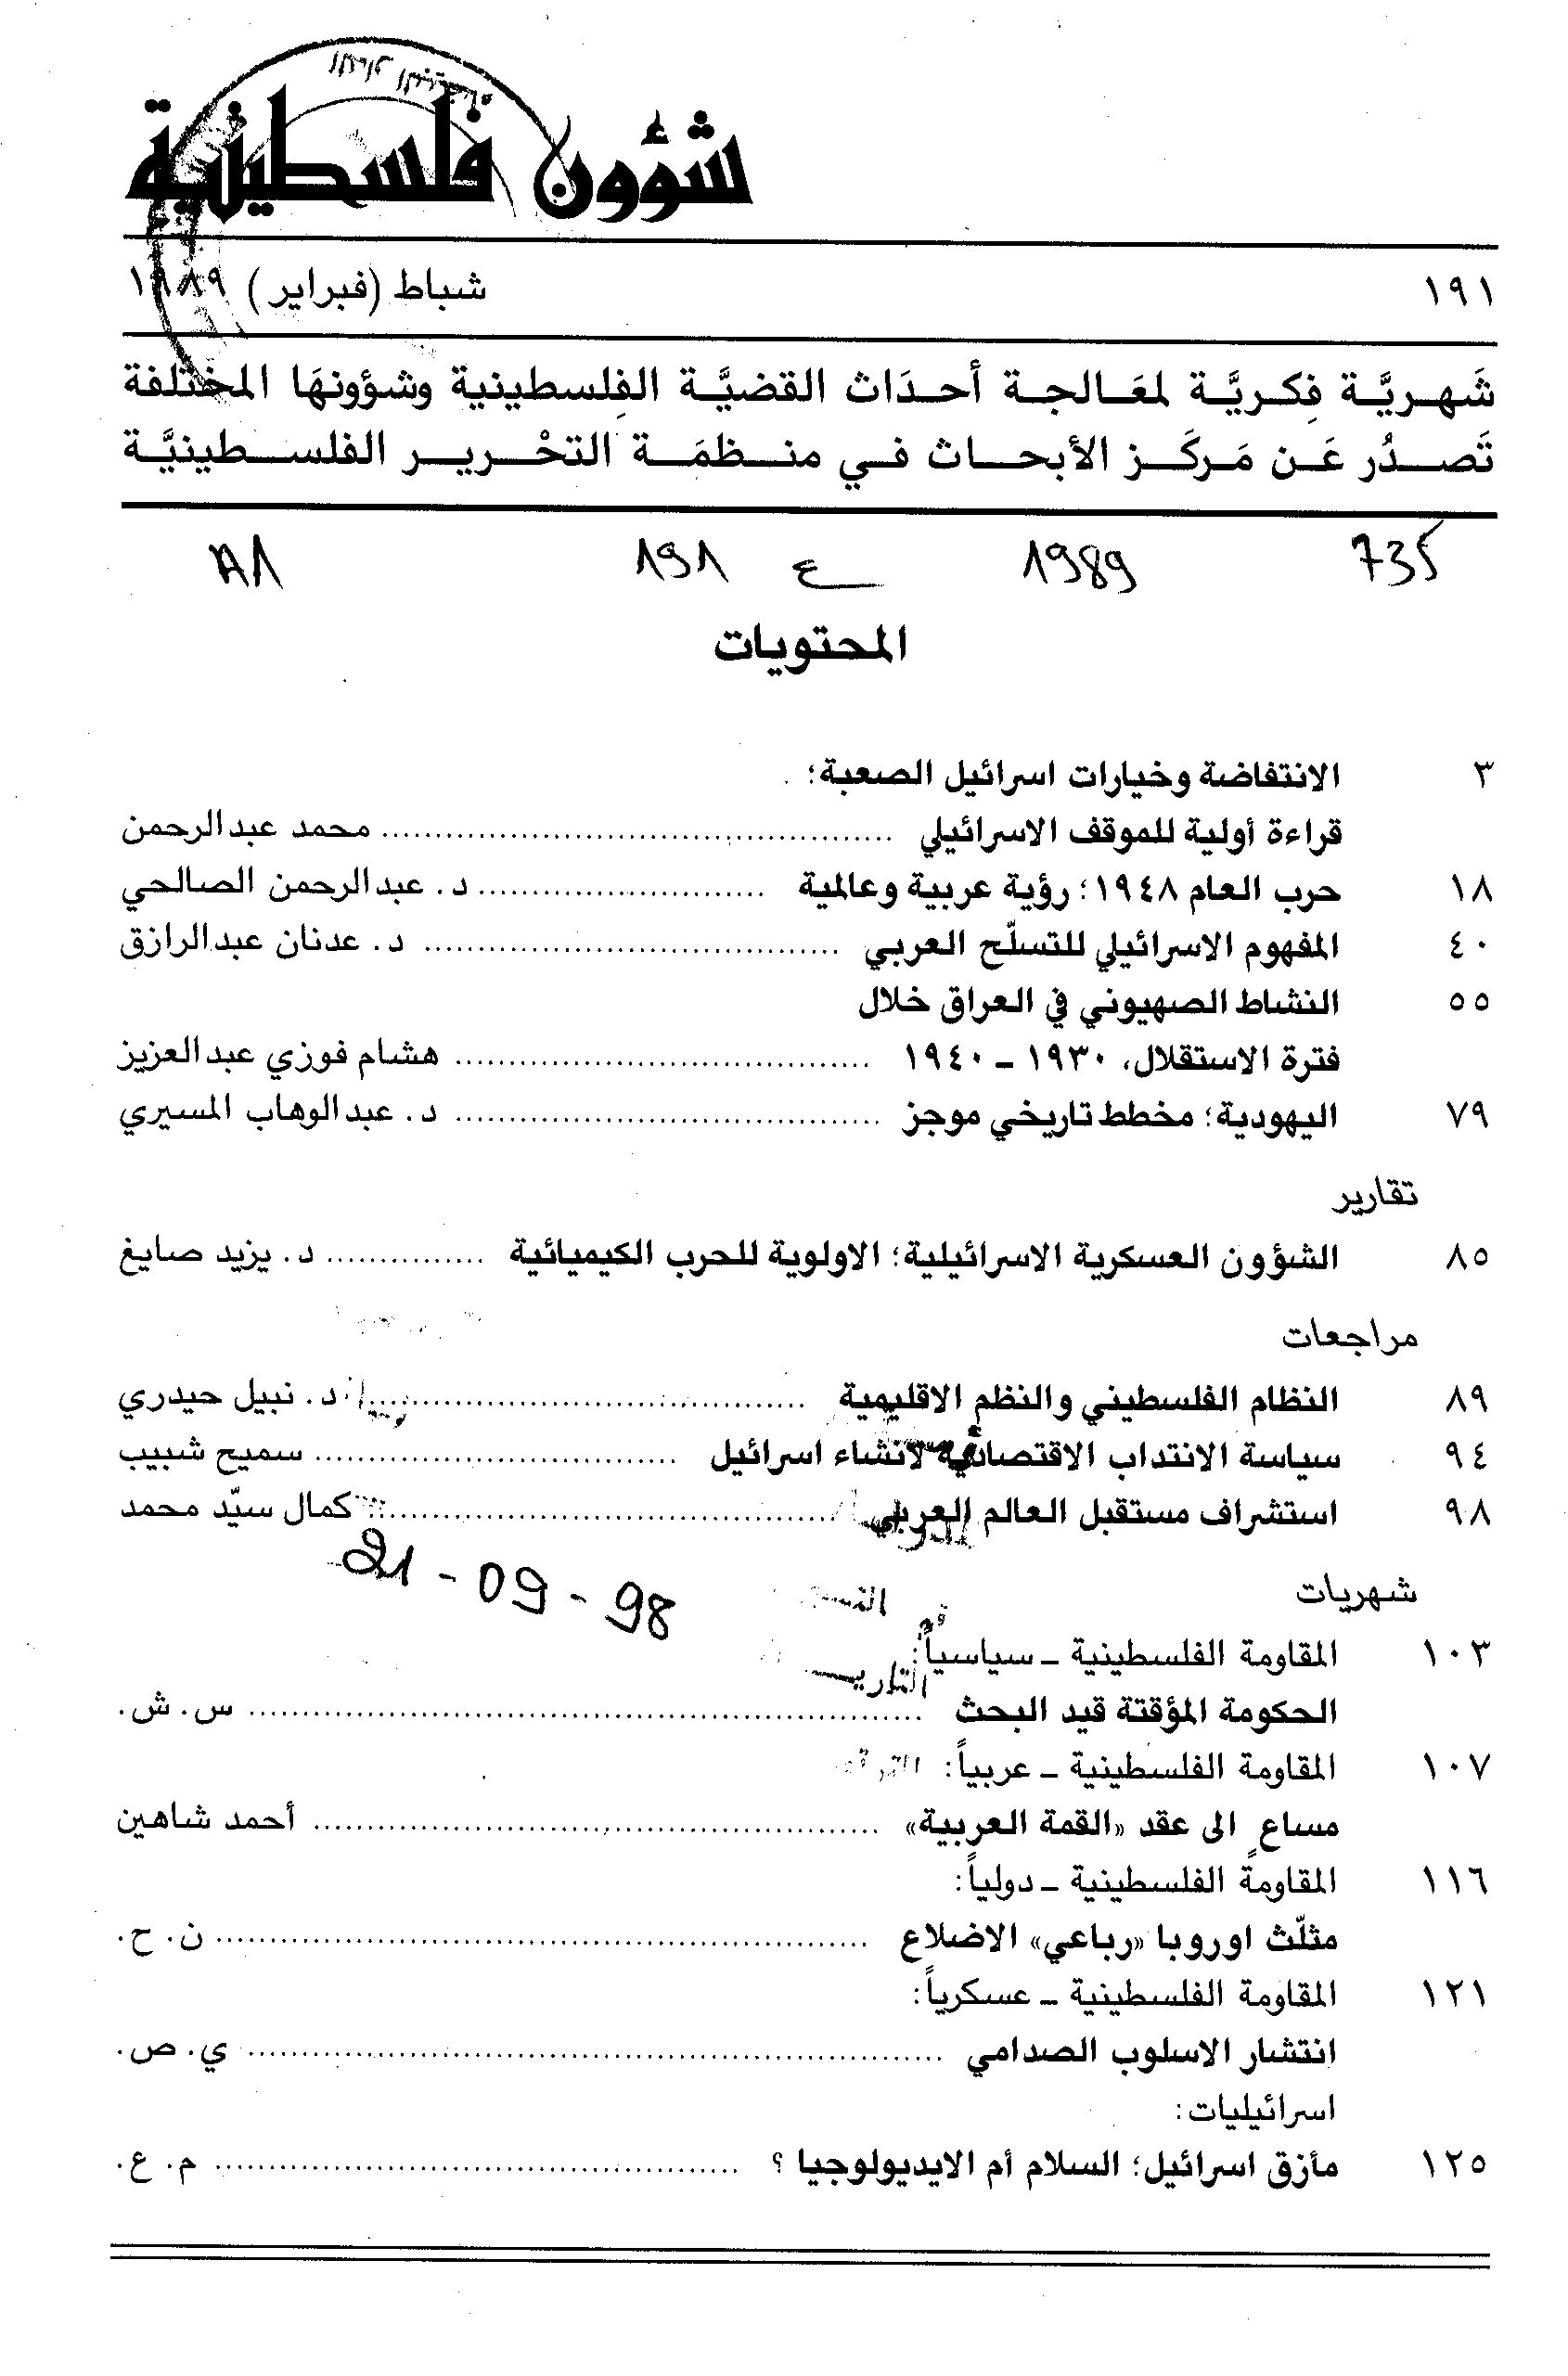 شؤون فلسطينية
١٩١ شباط (فبراير) ١٩٨٩
شَهـريَّـة فِكـريَّـة لمعَـالجـة أحـدَاث القضيَّـة الفِلسطينية وشؤونهَا المختلفة
تَصـدُر عَـن مَـركَـز الأبحـاث فـي منـظمَـة التحْـريـر الفلسـطينيَّـة
735 1989 ع 191
المحتويات
٣ الانتفاضة وخيارات اسرائيل الصعبة؛
قراءة أولية للموقف الاسرائيلي ........ محمد عبدالرحمن
١٨ حرب العام ١٩٤٨؛ رؤية عربية وعالمية ........ د. عبدالرحمن الصالحي
٤٠ المفهوم الاسرائيلي للتسلّح العربي ........ د. عدنان عبدالرازق
٥٥ النشاط الصهيوني في العراق خلال
فترة الاستقلال، ١٩٣٠ ـ ١٩٤٠ ........ هشام فوزي عبدالعزيز
٧٩ اليهودية؛ مخطط تاريخي موجز ........ د. عبدالوهاب المسيري
تقارير
٨٥ الشؤون العسكرية الاسرائيلية؛ الاولوية للحرب الكيميائية ........ د. يزيد صايغ
مراجعات
٨٩ النظام الفلسطيني والنظم الاقليمية ........ د. نبيل حيدري
٩٤ سياسة الانتداب الاقتصادية لانشاء اسرائيل ........ سميح شبيب
٩٨ استشراف مستقبل العالم العربي ........ كمال سيّد محمد
21-09-98
شهريات
١٠٣ المقاومة الفلسطينية ـ سياسياً:
الحكومة المؤقتة قيد البحث ........ س. ش.
١٠٧ المقاومة الفلسطينية ـ عربياً:
مساعٍ الى عقد «القمة العربية» ........ أحمد شاهين
١١٦ المقاومة الفلسطينية ـ دولياً:
مثلّث اوروبا «رباعي» الاضلاع ........ ن. ح.
١٢١ المقاومة الفلسطينية ـ عسكرياً:
انتشار الاسلوب الصدامي ........ ي. ص.
اسرائيليات:
١٢٥ مأزق اسرائيل؛ السلام أم الايديولوجيا ؟ ........ م. ع.